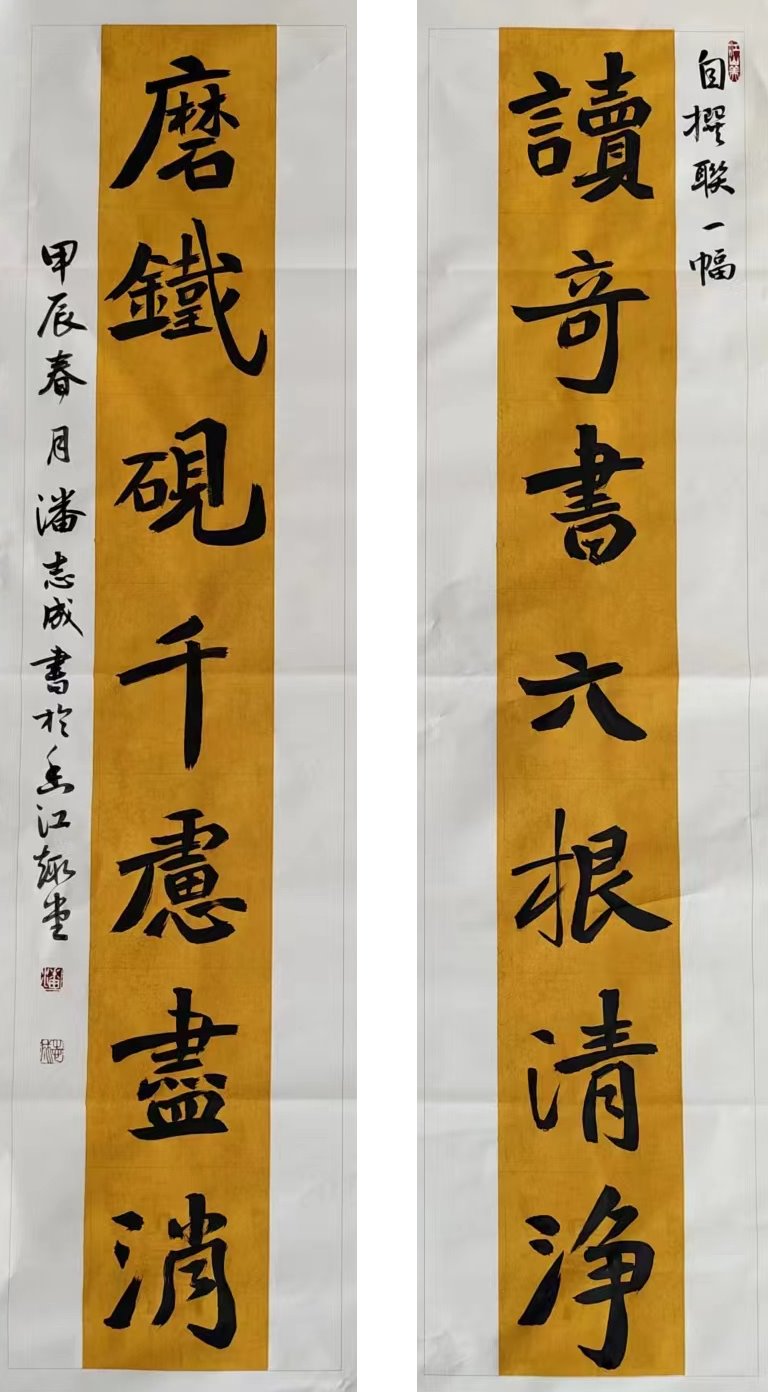 自撰联一幅
讀奇書六根清净
磨鐵硯千慮盡消
甲辰春月潘志成書於香江趣堂